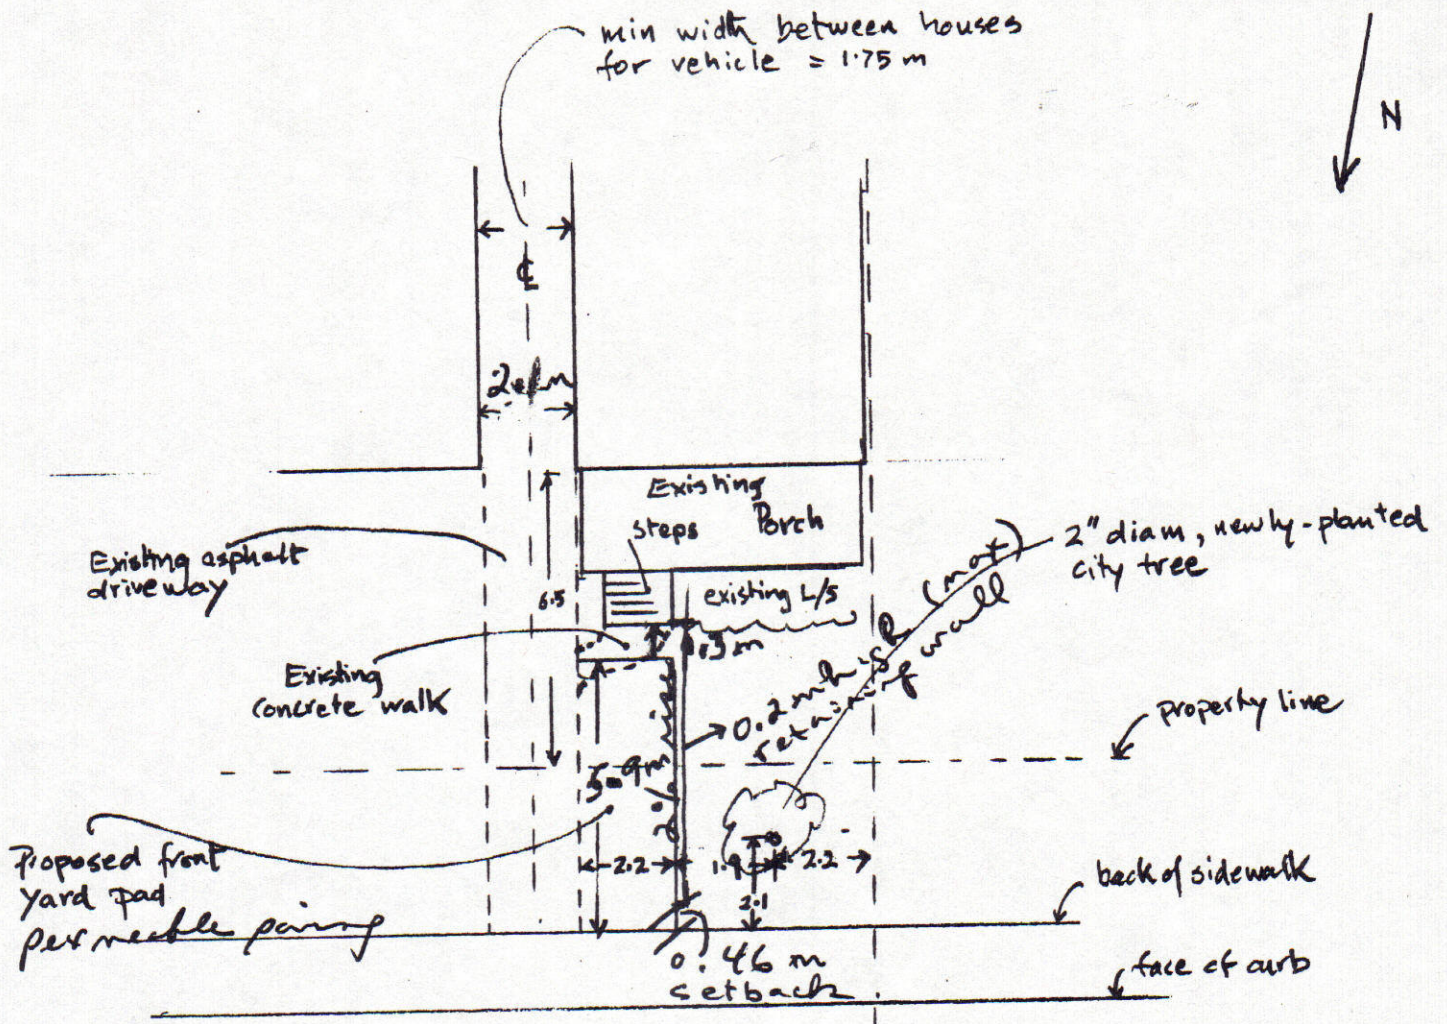 min width between houses
for vehicle = 1.75 m
N
℄
2.1m
Existing
Porch
steps
Existing asphalt
driveway
6.5
existing L/S
(max)
2" diam, newly-planted
city tree
.3 m
0.2 m high
retaining wall
Existing
concrete walk
property line
5.9m
2%
Proposed front
yard pad
permeable paving
2.2
1.9
2.2
2.1
back of sidewalk
0.46 m
setback
face of curb